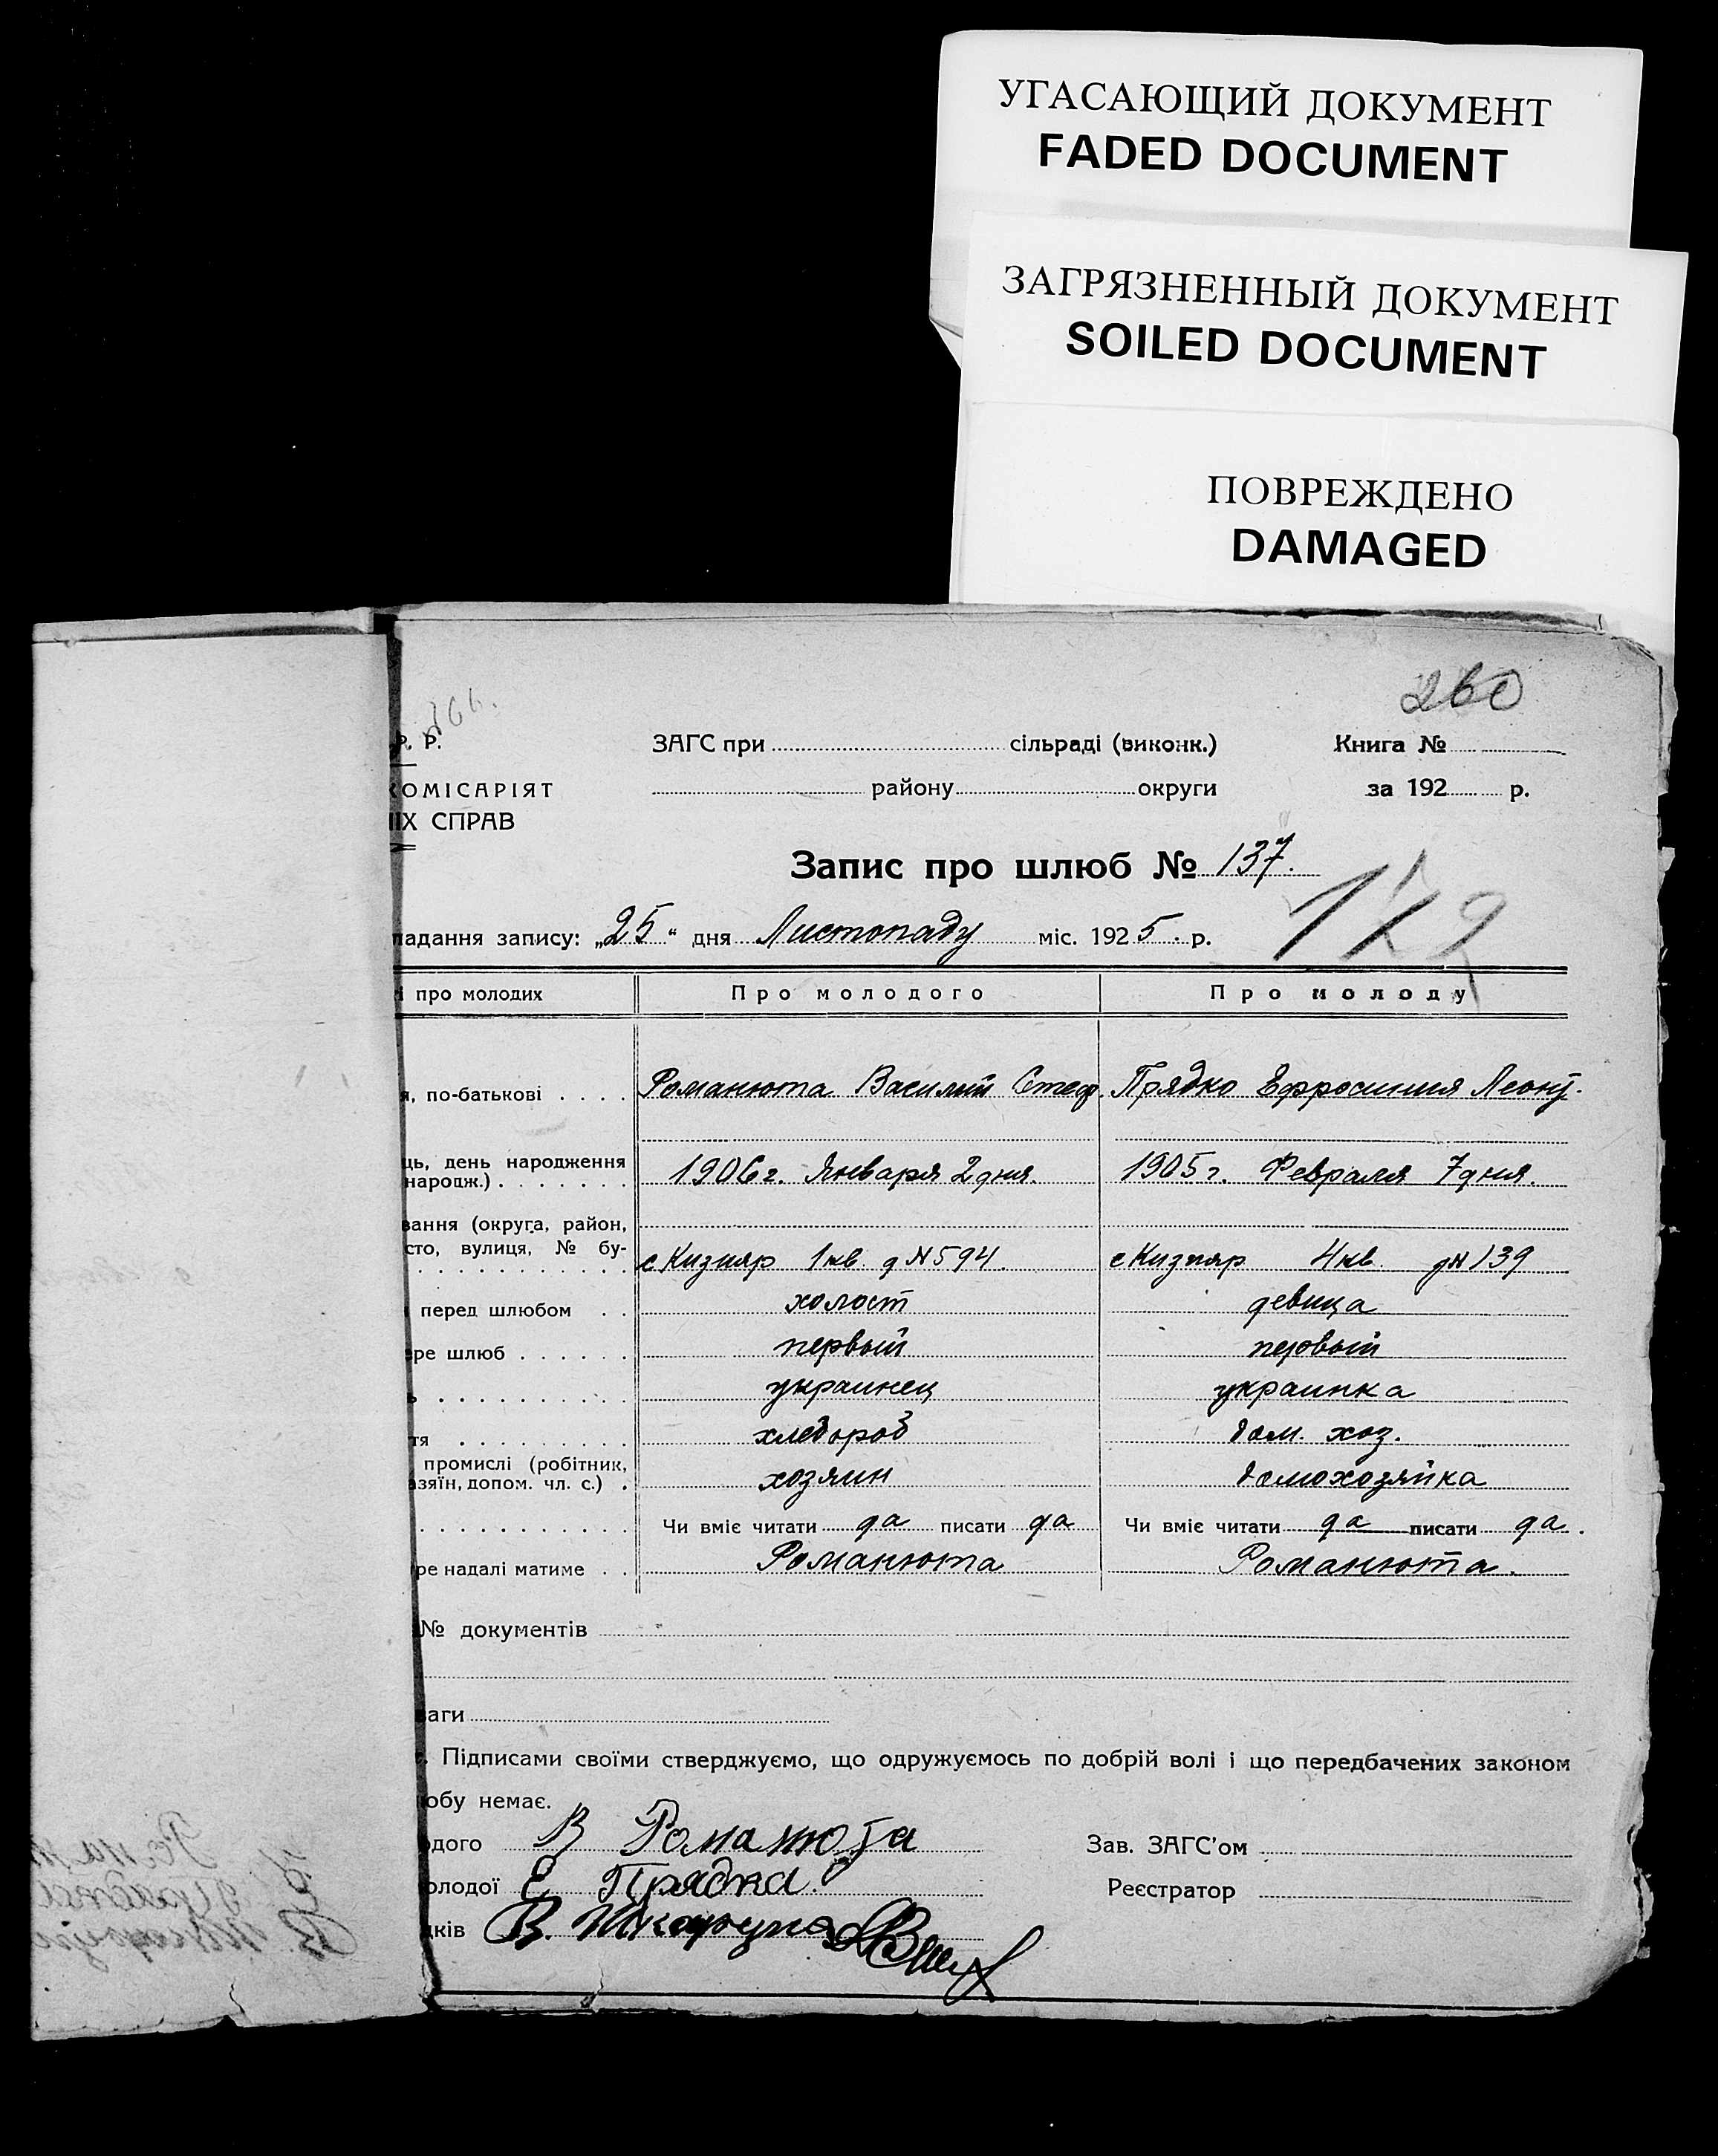 УГАСАЮЩИЙ ДОКУМЕНТ
FADED DOCUMENT
ЗАГРЯЗНЕННЫЙ ДОКУМЕНТ
SOILED DOCUMENT
ПОВРЕЖДЕНО
DAMAGED
260
Р. Р. ЗАГС при сільраді (виконк.) Книга №
КОМІСАРІЯТ району округи за 192 р.
ІХ СПРАВ
Запис про шлюб № 137.
ладання запису: „25“ дня Листопаду міс. 1925. р.
і про молодих Про молодого Про молоду
я, по-батькові Романюта Василий Стеф. Прядко Ефросиния Леонт.
ць, день народження
народж.) 1906 г. Января 2 дня. 1905 г. Февраля 7 дня.
вання (округа, район,
сто, вулиця, № бу-
с Кизияр 1 кв. д N 594. с Кизияр 4 кв. д N 139
і перед шлюбом холост девица
ре шлюб первый первый
ь украинец украинка
тя хлебороб дом. хоз.
промислі (робітник,
зяїн, допом. чл. с.) хозяин домохозяйка
Чи вміє читати да писати да Чи вміє читати да писати да.
ре надалі матиме Романюта Романюта.
№ документів
ваги
. Підписами своїми стверджуємо, що одружуємось по добрій волі і що передбачених законом
обу немає.
одого В Романюта Зав. ЗАГС'ом
олодої Е Прядка. Реєстратор
ків В.